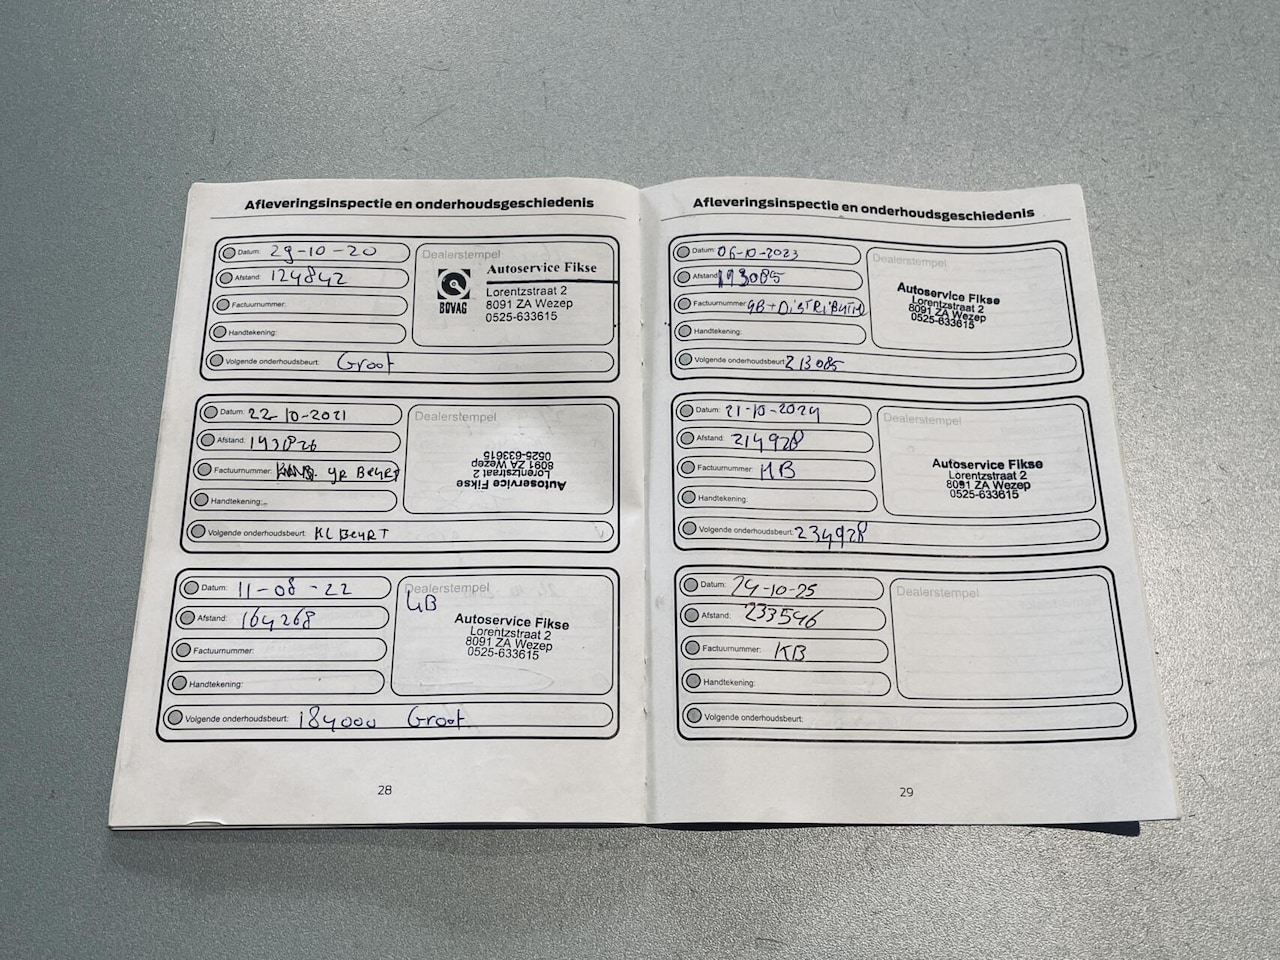 Afleveringsinspectie en onderhoudsgeschiedenis
Datum: 29-10-20
Afstand: 124842
Factuurnummer:
Handtekening:
Volgende onderhoudsbeurt: Groot
Dealerstempel
BOVAG
Autoservice Fikse
Lorentzstraat 2
8091 ZA Wezep
0525-633615
Datum: 22-10-2021
Afstand: 143826
Factuurnummer: gr Beurt
Handtekening:
Volgende onderhoudsbeurt: KL BeuRT
Dealerstempel
Autoservice Fikse
Lorentzstraat 2
8091 ZA Wezep
0525-633615
Datum: 11-08-22
Afstand: 164268
Factuurnummer:
Handtekening:
Volgende onderhoudsbeurt: 184000 Groot
Dealerstempel
GB
Autoservice Fikse
Lorentzstraat 2
8091 ZA Wezep
0525-633615
28
Afleveringsinspectie en onderhoudsgeschiedenis
Datum: 06-10-2023
Afstand: 193085
Factuurnummer: GB + DiSTRiBUTIE
Handtekening:
Volgende onderhoudsbeurt: 213085
Dealerstempel
Autoservice Fikse
Lorentzstraat 2
8091 ZA Wezep
0525-633615
Datum: 21-10-2024
Afstand: 214928
Factuurnummer: KB
Handtekening:
Volgende onderhoudsbeurt: 234928
Dealerstempel
Autoservice Fikse
Lorentzstraat 2
8091 ZA Wezep
0525-633615
Datum: 24-10-25
Afstand: 233546
Factuurnummer: KB
Handtekening:
Volgende onderhoudsbeurt:
Dealerstempel
29